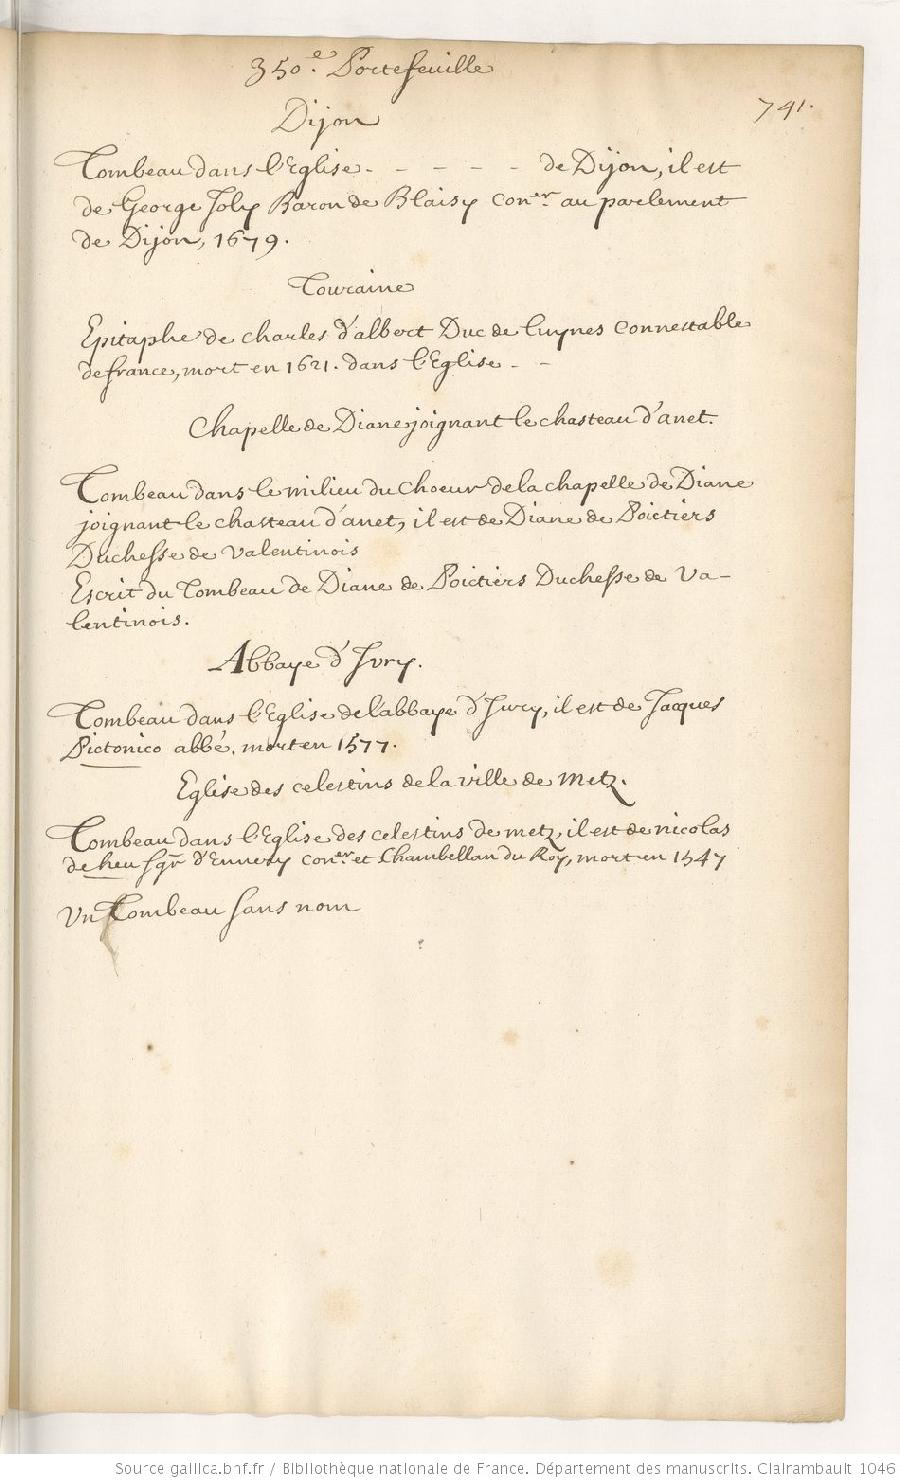 350.e Portefeuille
741.
Dijon
Tombeau dans l'Eglise - - - - - de Dijon, il est
de George Joly Baron de Blaisy con.er au parlement
de Dijon, 1679.
Touraine
Epitaphe de charles d'albert Duc de luynes connestable
de france, mort en 1621. dans l'Eglise - -
Chapelle de Diane joignant le chasteau d'anet.
Tombeau dans le milieu du choeur de la chapelle de Diane
joignant le chasteau d'anet, il est de Diane de Poictiers
Duchesse de valentinois
Escrit du Tombeau de Diane de Poictiers Duchesse de va-
lentinois.
Abbaye d'Ivry.
Tombeau dans l'Eglise de l'abbaye d'Ivry, il est de Jacques
Pictonico abbé, mort en 1577.
Eglise des celestins de la ville de Metz.
Tombeau dans l'Eglise des celestins de metz, il est de nicolas
de heu sgr d'Ennery con.er et Chambellan du Roy, mort en 1547
Un Tombeau sans nom
Source gallica.bnf.fr / Bibliothèque nationale de France. Département des manuscrits. Clairambault 1046